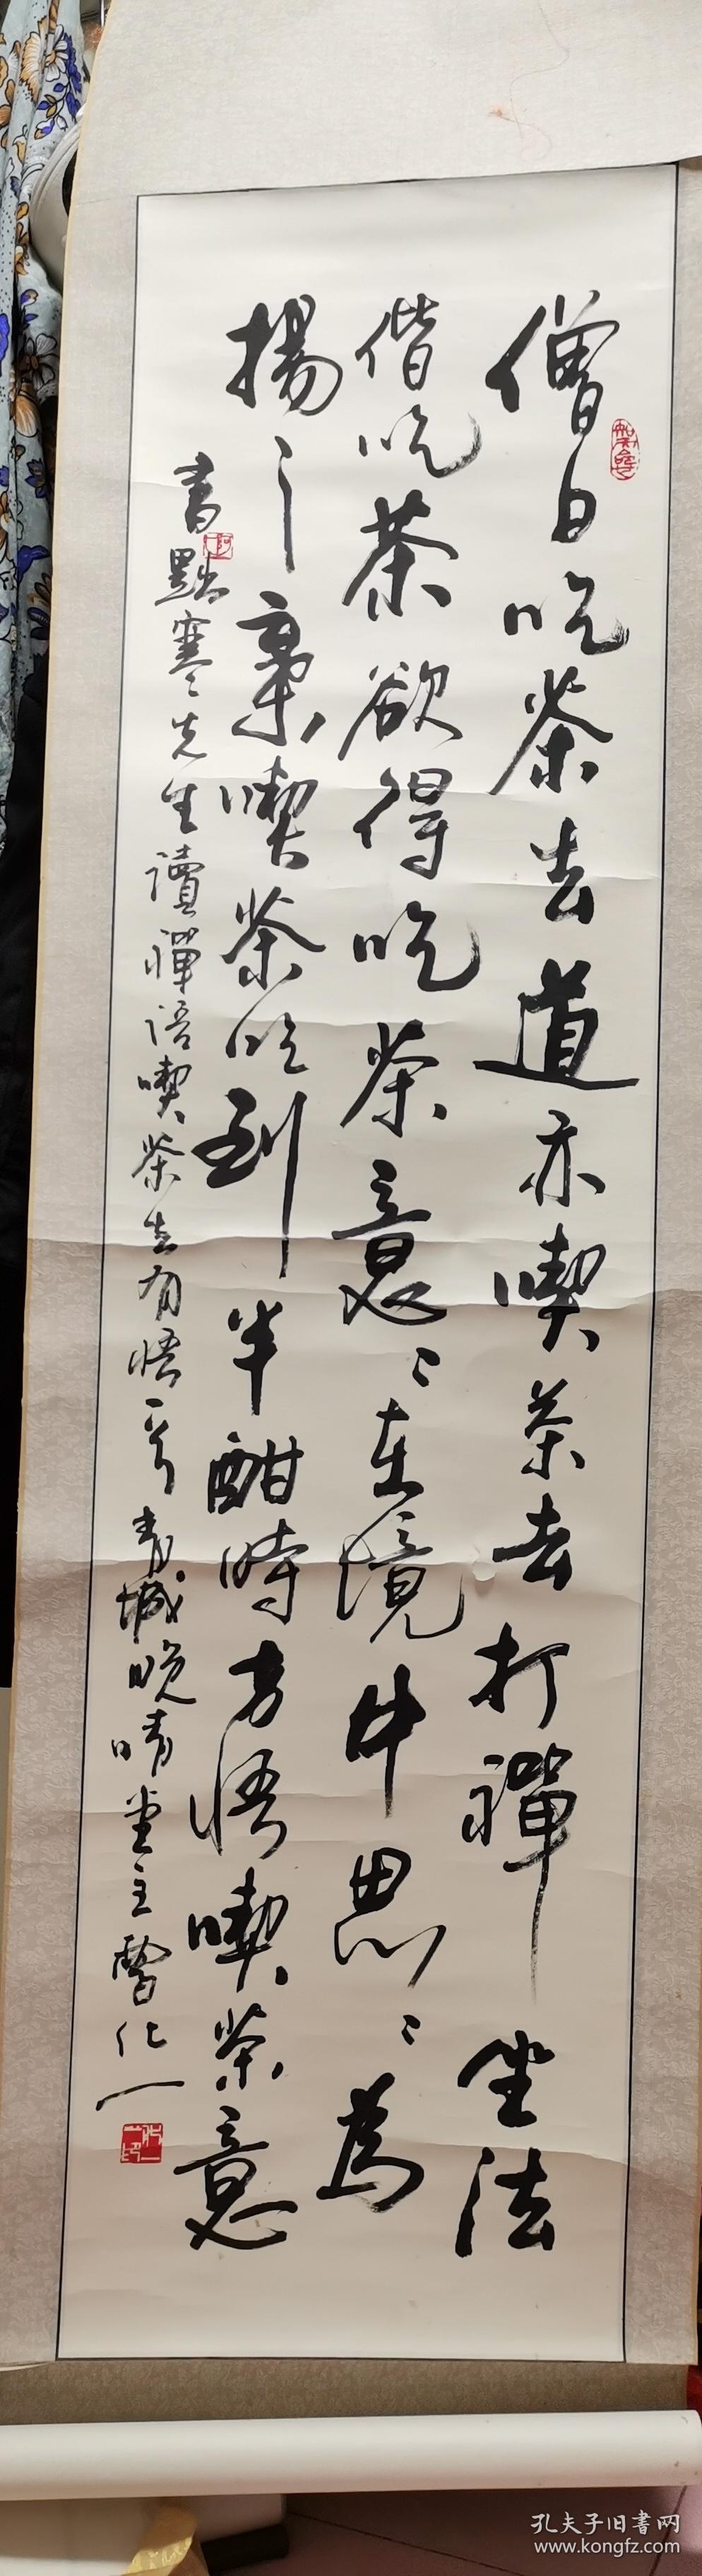 僧曰吃茶去道亦喫茶去打禪坐法
偕吃茶欲得吃茶意意在境中思思為
揚之棄喫茶吃到半酣時方悟喫茶意
書點寒先生讀禪語喫茶去有悟一首青城晚晴堂主曾化一
孔夫子旧书网
www.kongfz.com